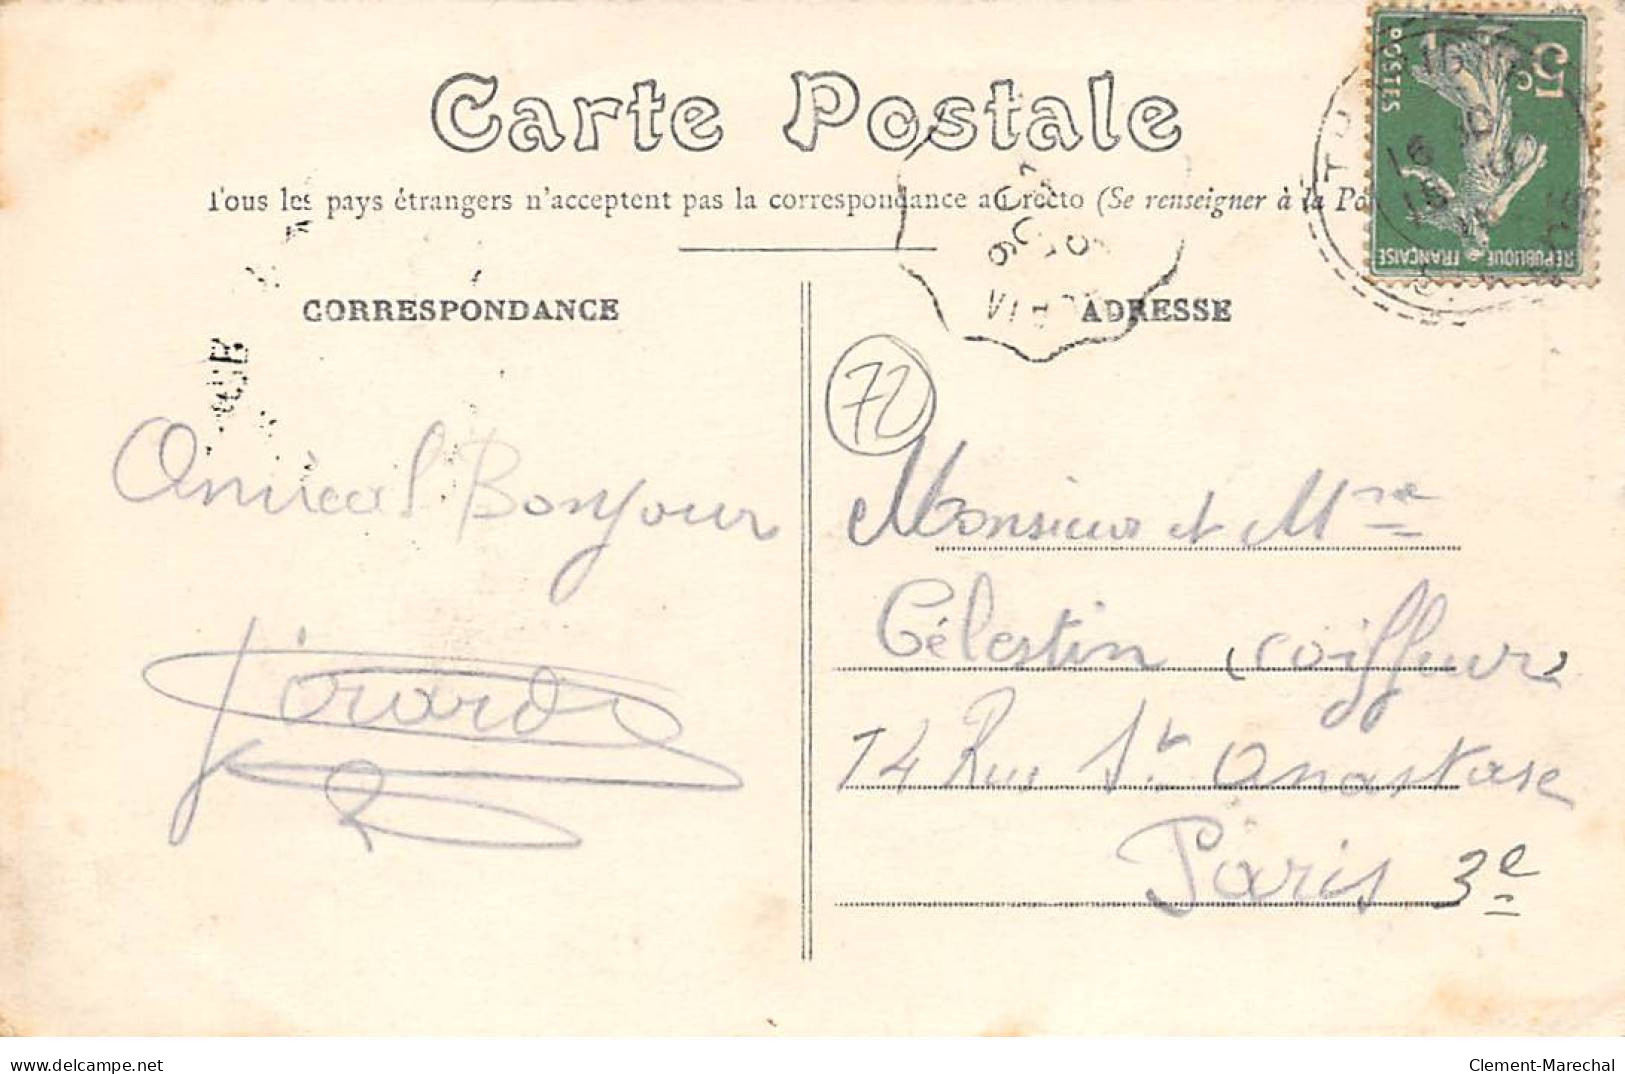 Carte Postale
Tous les pays étrangers n'acceptent pas la correspondance au recto (Se renseigner à la
CORRESPONDANCE
ADRESSE
5c
POSTES
REPUBLIQUE FRANÇAISE
72
Amical Bonjour
Girard
Monsieur et Mme
Célestin (coiffeur)
14 Rue St Anastase
Paris 3e
www.delcampe.net
Clement-Marechal